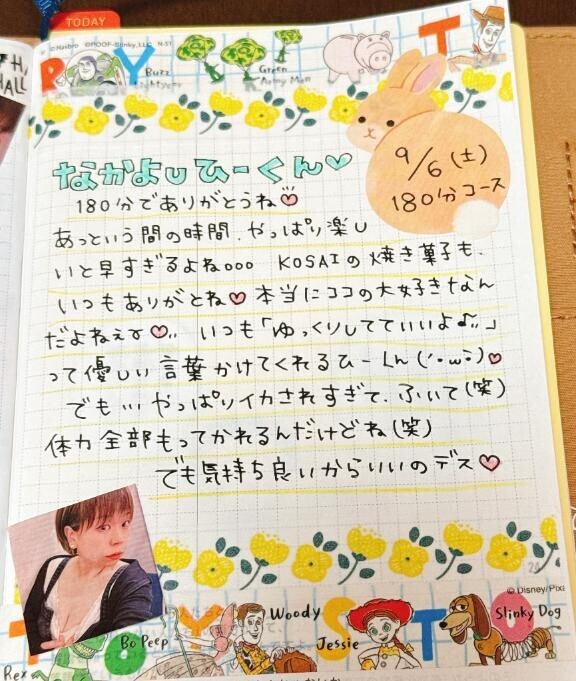 TODAY
©Hasbro ©POOF-Slinky, LLC N-51
Buzz
Lightyear
Green
Army Men
T
HALL
9/6(土)
180分コース
なかよしひーくん♡
180分でありがとうね♡
あっという間の時間、やっぱり楽し
いと早すぎるよね。。。 KOSAIの焼き菓子も、
いつもありがとね♡ 本当にココの大好きなん
だよねぇ♡ いつも「ゆっくりしてていいよ♪」
って優しい言葉かけてくれるひーくん(´･ω･)♡
でも… やっぱりイカされすぎて、ふいて(笑)
体力全部もってかれるんだけどね(笑)
でも気持ち良いからいいのデス♡
©Disney/Pixa
Woody
Slinky Dog
Bo Peep
Jessie
Rex
TOY ST